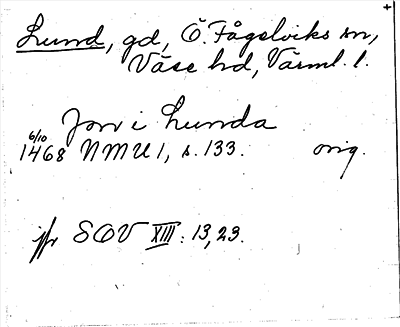 +
Lund, gd, Ö. Fågelviks sn,
Väse hd, Värml. l.
Jon i Lunda
6/10
1468 NMU 1, s. 133. orig.
jfr SOV XIII: 13, 23.